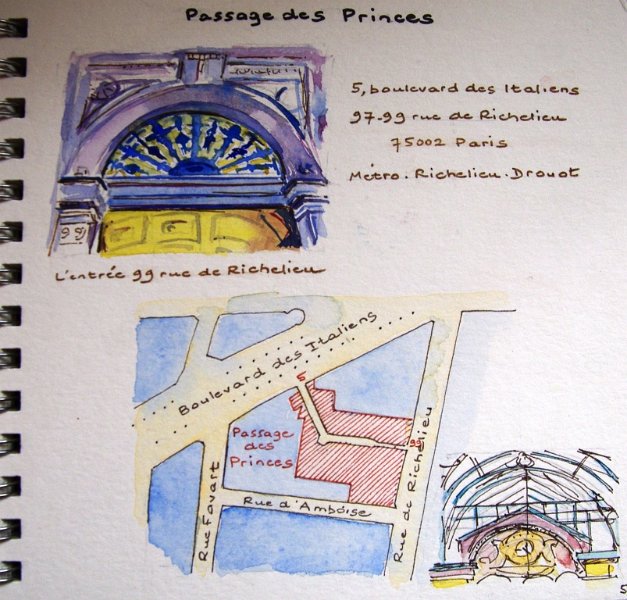 Passage des Princes
5, boulevard des Italiens
97-99 rue de Richelieu
75002 Paris
Métro. Richelieu. Drouot
99
L'entrée 99 rue de Richelieu
Boulevard des Italiens
5
Passage
des
Princes
99
Rue de Richelieu
Rue Favart
Rue d'Amboise
5